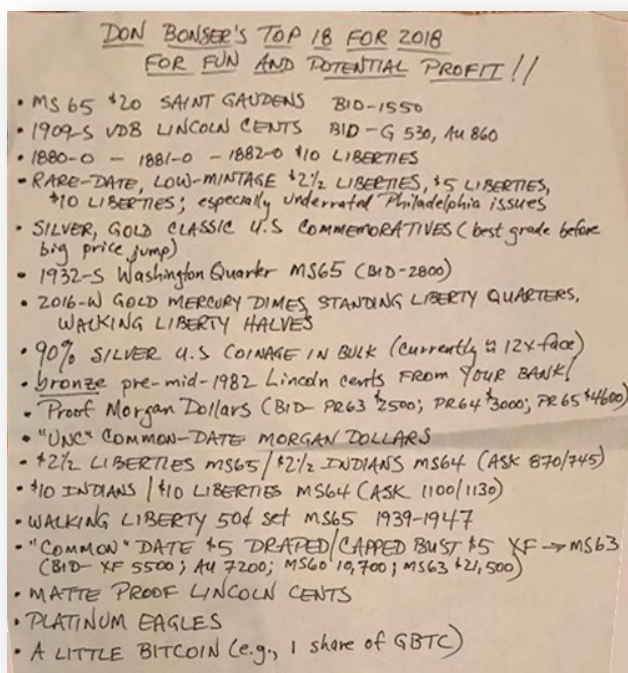 DON BONSER'S TOP 18 FOR 2018
FOR FUN AND POTENTIAL PROFIT!!
• MS 65 $20 SAINT GAUDENS BID-1550
• 1909-S VDB LINCOLN CENTS BID-G 530, AU 860
• 1880-O - 1881-O - 1882-O $10 LIBERTIES
• RARE-DATE, LOW-MINTAGE $2½ LIBERTIES, $5 LIBERTIES,
$10 LIBERTIES; especially underrated Philadelphia issues
• SILVER, GOLD CLASSIC U.S COMMEMORATIVES (best grade before
big price jump)
• 1932-S Washington Quarter MS65 (BID-2800)
• 2016-W GOLD MERCURY DIMES, STANDING LIBERTY QUARTERS,
WALKING LIBERTY HALVES
• 90% SILVER U.S COINAGE IN BULK (currently ≈ 12x face)
• bronze pre-mid-1982 Lincoln cents FROM YOUR BANK!
• Proof Morgan Dollars (BID- PR63 $2500; PR64 $3000; PR65 $4600)
• "UNC" COMMON-DATE MORGAN DOLLARS
• $2½ LIBERTIES MS65/$2½ INDIANS MS64 (ASK 870/745)
• $10 INDIANS/$10 LIBERTIES MS64 (ASK 1100/1130)
• WALKING LIBERTY 50¢ set MS65 1939-1947
• "COMMON" DATE $5 DRAPED/CAPPED BUST $5 XF → MS63
(BID- XF 5500; AU 7200; MS60 10,700; MS63 $21,500)
• MATTE PROOF LINCOLN CENTS
• PLATINUM EAGLES
• A LITTLE BITCOIN (e.g., 1 share of GBTC)